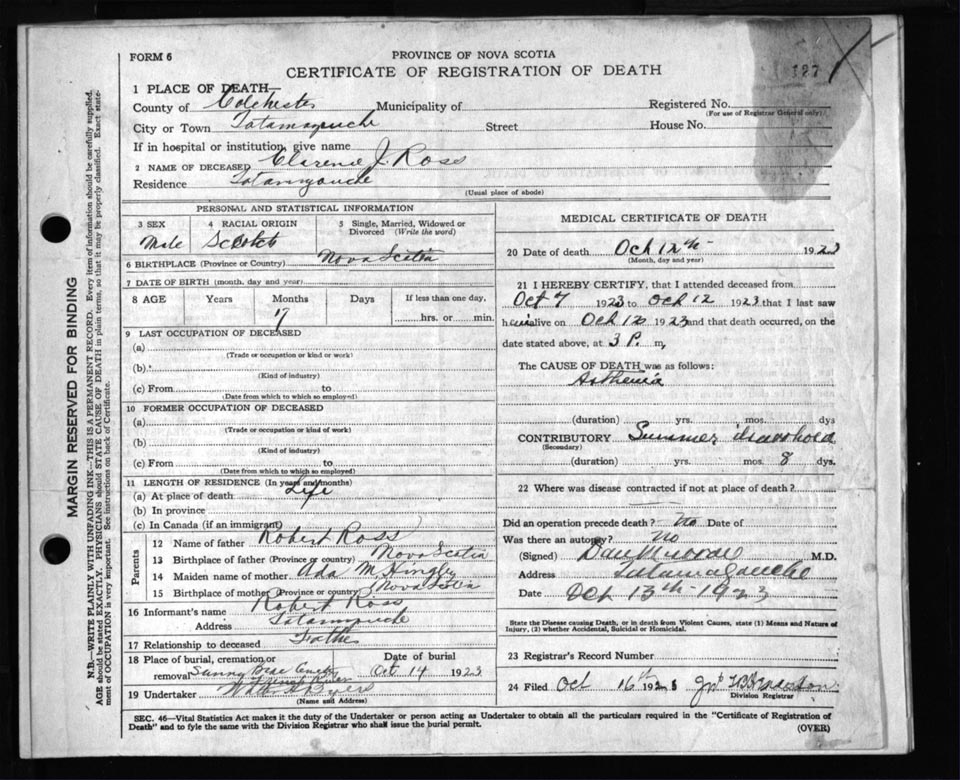 FORM 6
PROVINCE OF NOVA SCOTIA
CERTIFICATE OF REGISTRATION OF DEATH
127
1 PLACE OF DEATH—
County of Colchester Municipality of Registered No.
(For use of Registrar General only)
City or Town Tatamagouche Street House No.
If in hospital or institution, give name
2 NAME OF DECEASED Clarence J. Ross
Residence Tatamagouche
(Usual place of abode)
PERSONAL AND STATISTICAL INFORMATION
3 SEX Male
4 RACIAL ORIGIN Scotch
5 Single, Married, Widowed or Divorced (Write the word)
6 BIRTHPLACE (Province or Country) Nova Scotia
7 DATE OF BIRTH (month, day and year)
8 AGE Years Months Days If less than one day,
17
hrs. or min.
9 LAST OCCUPATION OF DECEASED
(a)
(Trade or occupation or kind or work)
(b)
(Kind of industry)
(c) From to
(Date from which to which so employed)
10 FORMER OCCUPATION OF DECEASED
(a)
(Trade or occupation or kind of work)
(b)
(Kind of industry)
(c) From to
(Date from which to which so employed)
11 LENGTH OF RESIDENCE (In years and months)
(a) At place of death Life
(b) In province
(c) In Canada (if an immigrant)
Parents
12 Name of father Robert Ross
13 Birthplace of father (Province or country) Nova Scotia
14 Maiden name of mother Ada M. Hingley
15 Birthplace of mother (Province or country) Nova Scotia
16 Informant's name Robert Ross
Address Tatamagouche
17 Relationship to deceased Father
18 Place of burial, cremation or removal Sunny Brae
Date of burial Oct 14 1923
19 Undertaker
(Name and Address)
MEDICAL CERTIFICATE OF DEATH
20 Date of death Oct 12th 1923
(Month, day and year)
21 I HEREBY CERTIFY, that I attended deceased from
Oct 7 1923 to Oct 12 1923 that I last saw
him alive on Oct 12 1923 and that death occurred, on the
date stated above, at 3 P. m,
The CAUSE OF DEATH was as follows:
Asthenia
(duration) yrs. mos. dys
CONTRIBUTORY Summer
(Secondary)
(duration) yrs. mos. 8 dys.
22 Where was disease contracted if not at place of death?
Did an operation precede death? no Date of
Was there an autopsy? no
(Signed) Dan M.D.
Address Tatamagouche
Date Oct 13th 1923
State the Disease causing Death, or in death from Violent Causes, state (1) Means and Nature of
Injury, (2) whether Accidental, Suicidal or Homicidal.
23 Registrar's Record Number
24 Filed Oct 16th 1923
Division Registrar
SEC. 46—Vital Statistics Act makes it the duty of the Undertaker or person acting as Undertaker to obtain all the particulars required in the "Certificate of Registration of
Death" and to fyle the same with the Division Registrar who shall issue the burial permit.
(OVER)
MARGIN RESERVED FOR BINDING
N.B.—WRITE PLAINLY WITH UNFADING INK—THIS IS A PERMANENT RECORD. Every item of information should be carefully supplied.
AGE should be stated EXACTLY. PHYSICIANS should STATE CAUSE OF DEATH in plain terms, so that it may be properly classified. Exact state-
ment of OCCUPATION is very important. See instructions on back of Certificate.